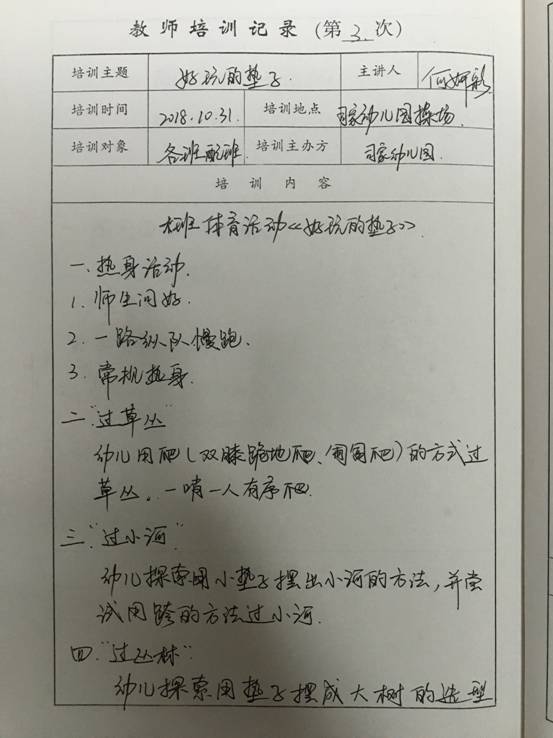 教师培训记录（第3次）
培训主题 好玩的垫子 主讲人
培训时间 2018.10.31. 培训地点 司家幼儿园操场.
培训对象 各班配班 培训主办方 司家幼儿园.
培训内容
大班体育活动《好玩的垫子》.
一.热身活动.
1.师生问好.
2.一路纵队慢跑.
3.常规热身.
二."过草丛"
幼儿用爬(双膝跪地爬、匍匐爬)的方式过
草丛。一哨一人有序爬.
三."过小河"
幼儿探索用小垫子摆出小河的方法,并尝
试用跨的方法过小河.
四."过丛林"
幼儿探索用垫子摆成大树的造型